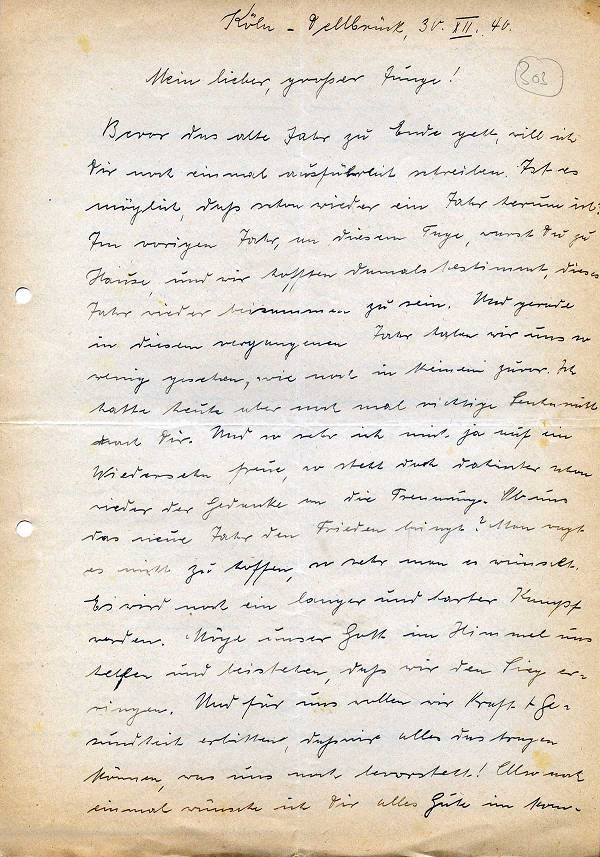 Köln - Dellbrück, 30. XII. 40.
303
Mein lieber, großer Junge!
Bevor das alte Jahr zu Ende geht, will ich
Dir noch einmal ausführlich schreiben. Ist es
möglich, daß schon wieder ein Jahr herum ist?
Im vorigen Jahr, an diesem Tage, warst Du zu
Hause, und wir hofften damals bestimmt, dieses
Jahr wieder beisammen zu sein. Und gerade
in diesem vergangenen Jahr haben wir uns so
wenig gesehen, wie noch in keinem zuvor. Ich
hatte heute aber noch mal richtige Sehnsucht
nach Dir. Und so sehr ich mich ja auf ein
Wiedersehn freue, so steht doch dahinter schon
wieder der Gedanke an die Trennung. Ob uns
das neue Jahr den Frieden bringt? Man wagt
es nicht zu hoffen, so sehr man es wünscht.
Es wird noch ein langer und harter Kampf
werden. Möge unser Gott im Himmel uns
helfen und beistehen, daß wir den Sieg er-
ringen. Und für uns wollen wir Kraft + Ge-
sundheit erbitten, daß wir alles das tragen
können, was uns noch bevorsteht! Also noch
einmal wünsche ich Dir alles Gute im kom-